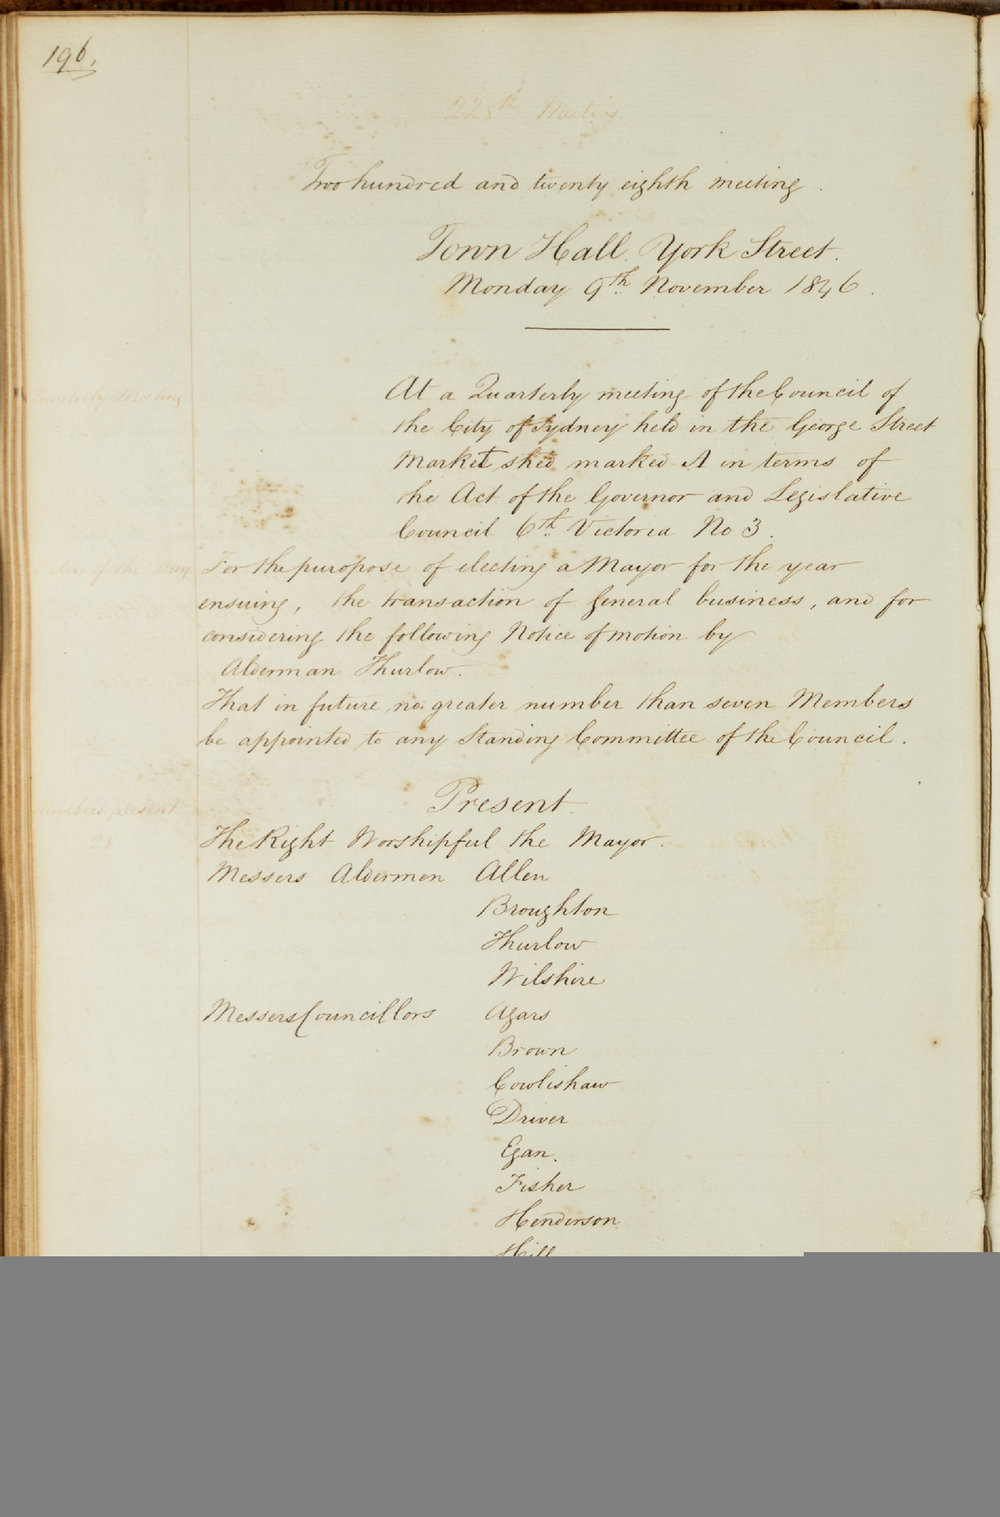 196.
228th Meeting
Two hundred and twenty eighth meeting.
Town Hall York Street.
Monday 9th November 1846.
Quarterly Meeting
At a Quarterly meeting of the Council of
the City of Sydney held in the George Street
Market shed marked A in terms of
the Act of the Governor and Legislative
Council 6th Victoria No 3.
of the Day
For the puropose of electing a Mayor for the year
ensuing, the transaction of general business, and for
considering the following Notice of motion by
Alderman Thurlow.
That in future no greater number than seven Members
be appointed to any Standing Committee of the Council.
Present.
Members present
28
The Right Worshipful the Mayor.
Messers Aldermen Allen
Broughton
Thurlow
Wilshire
Messers Councillors Agars
Brown
Cowlishaw
Driver
Egan.
Fisher
Henderson
Hill